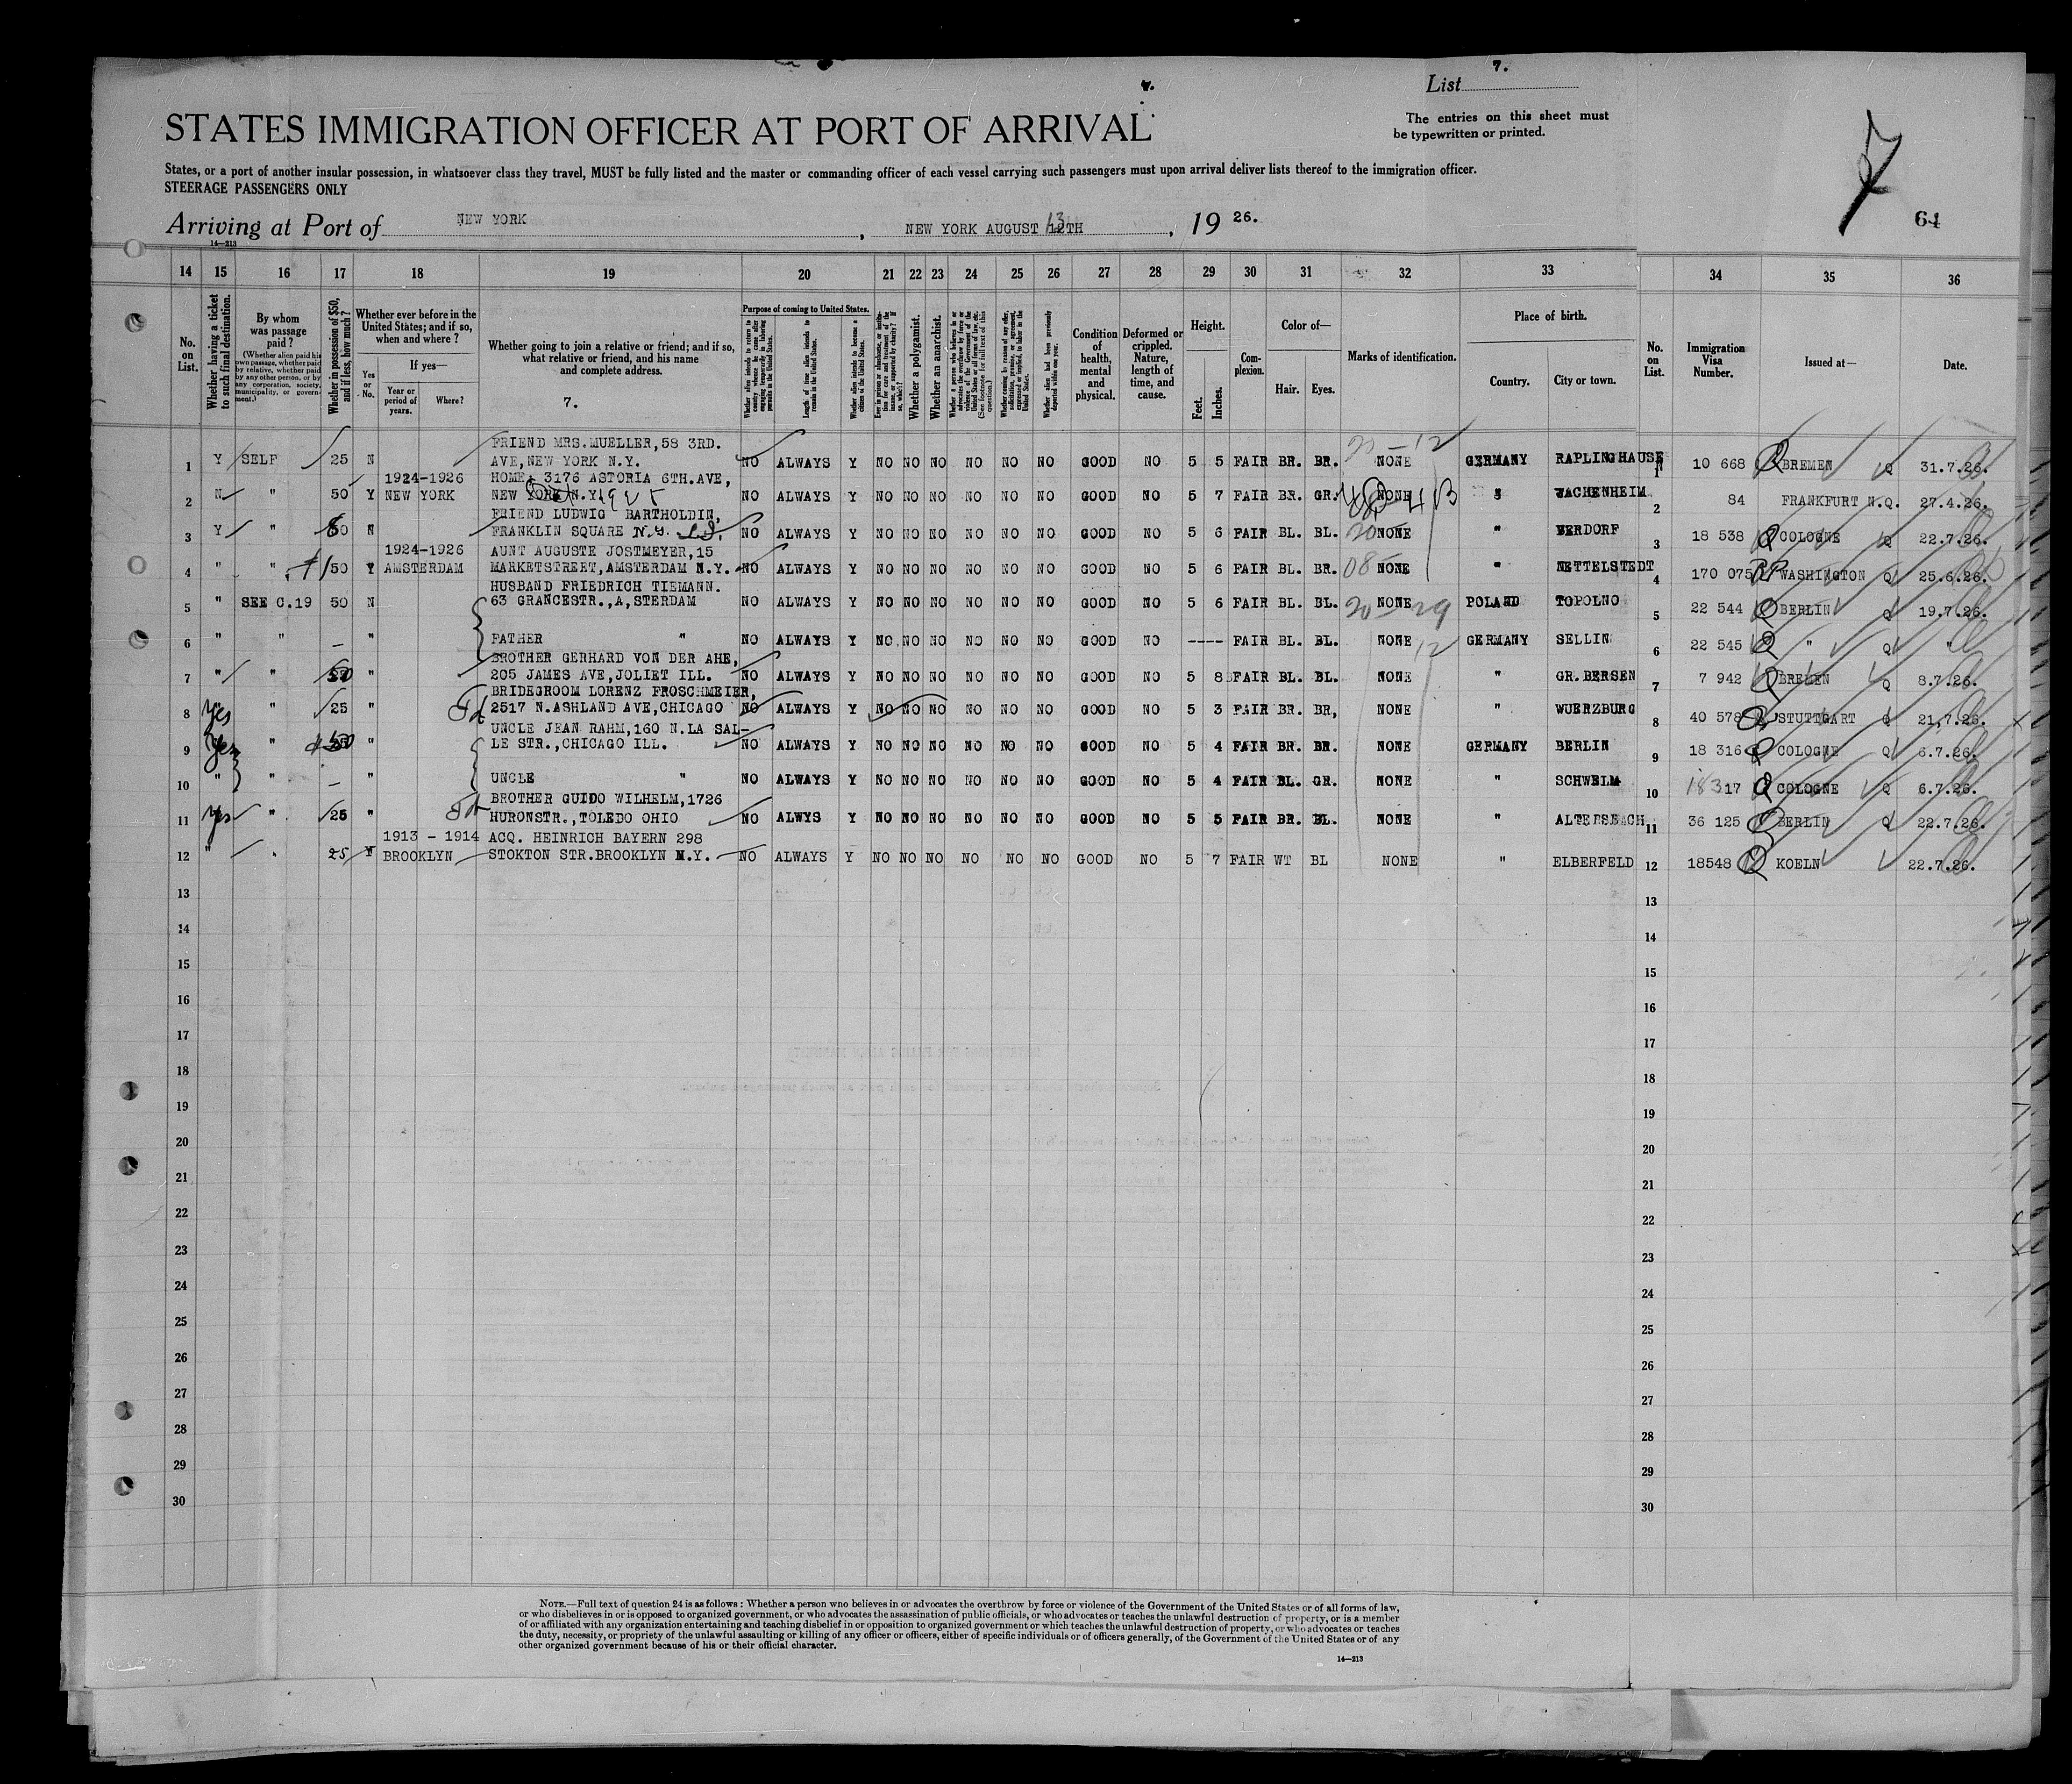 7.
7.
List
STATES IMMIGRATION OFFICER AT PORT OF ARRIVAL
The entries on this sheet must
be typewritten or printed.
States, or a port of another insular possession, in whatsoever class they travel, MUST be fully listed and the master or commanding officer of each vessel carrying such passengers must upon arrival deliver lists thereof to the immigration officer.
STEERAGE PASSENGERS ONLY
64
Arriving at Port of NEW YORK, NEW YORK AUGUST 13TH, 19 26.
14—213
14 15 16 17 18 19 20 21 22 23 24 25 26 27 28 29 30 31 32 33 34 35 36
No. on List.
Whether having a ticket to such final destination.
By whom was passage paid?
(Whether alien paid his own passage, whether paid by relative, whether paid by any other person, or by any corporation, society, municipality, or government.)
Whether in possession of $50, and if less, how much?
Whether ever before in the United States; and if so, when and where?
Yes or No.
If yes—
Year or period of years.
Where?
Whether going to join a relative or friend; and if so, what relative or friend, and his name and complete address.
7.
Purpose of coming to United States.
Length of time alien intends to remain in the United States.
Whether alien intends to become a citizen of the United States.
Whether a polygamist.
Whether an anarchist.
Condition of health, mental and physical.
Deformed or crippled. Nature, length of time, and cause.
Height.
Feet. Inches.
Complexion.
Color of—
Hair. Eyes.
Marks of identification.
Place of birth.
Country. City or town.
No. on List.
Immigration Visa Number.
Issued at—
Date.
FRIEND MRS.MUELLER,58 3RD.
1 Y SELF 25 N AVE,NEW YORK N.Y. NO ALWAYS Y NO NO NO NO NO NO GOOD NO 5 5 FAIR BR. BR. NONE GERMANY RAPLINGHAUSEN 1 10 668 BREMEN Q 31.7.26.
1924-1926 HOME: 3176 ASTORIA 6TH.AVE,
2 N " 50 Y NEW YORK NEW YORK N.Y. 1925 NO ALWAYS Y NO NO NO NO NO NO GOOD NO 5 7 FAIR BR. GR. NONE " WACHENHEIM 2 84 FRANKFURT N.Q. 27.4.26.
FRIEND LUDWIG BARTHOLDIN,
3 Y " 50 N FRANKLIN SQUARE N.Y. L.I. NO ALWAYS Y NO NO NO NO NO NO GOOD NO 5 6 FAIR BL. BL. NONE " BERDORF 3 18 538 COLOGNE Q 22.7.26.
1924-1926 AUNT AUGUSTE JOSTMEYER,15
4 " " 50 Y AMSTERDAM MARKETSTREET,AMSTERDAM N.Y. NO ALWAYS Y NO NO NO NO NO NO GOOD NO 5 6 FAIR BL. BR. NONE " NETTELSTEDT 4 170 075 WASHINGTON Q 25.6.26.
HUSBAND FRIEDRICH TIEMANN.
5 " SEE C.19 50 N 63 GRANCESTR.,A,STERDAM NO ALWAYS Y NO NO NO NO NO NO GOOD NO 5 6 FAIR BL. BL. NONE POLAND TOPOLNO 5 22 544 BERLIN Q 19.7.26.
6 " " — " FATHER " NO ALWAYS Y NO NO NO NO NO NO GOOD NO ---- FAIR BL. BL. NONE GERMANY SELLIN 6 22 545 " Q "
BROTHER GERHARD VON DER AHE,
7 " " 50 " 205 JAMES AVE,JOLIET ILL. NO ALWAYS Y NO NO NO NO NO NO GOOD NO 5 8 FAIR BL. BL. NONE " GR.BERSEN 7 7 942 BREMEN Q 8.7.26.
BRIDEGROOM LORENZ FROSCHMEIER,
8 Yes " 25 " 2517 N.ASHLAND AVE,CHICAGO NO ALWAYS Y NO NO NO NO NO NO GOOD NO 5 3 FAIR BR. BR, NONE " WUERZBURG 8 40 578 STUTTGART Q 21,7.26.
UNCLE JEAN RAHM,160 N.LA SAL-
9 Yes " 50 " LE STR.,CHICAGO ILL. NO ALWAYS Y NO NO NO NO NO NO GOOD NO 5 4 FAIR BR. BR. NONE GERMANY BERLIN 9 18 316 COLOGNE Q 6.7.26.
10 " " — " UNCLE " NO ALWAYS Y NO NO NO NO NO NO GOOD NO 5 4 FAIR BL. GR. NONE " SCHWELM 10 18317 COLOGNE Q 6.7.26.
BROTHER GUIDO WILHELM,1726
11 Yes " 25 " HURONSTR.,TOLEDO OHIO NO ALWYS Y NO NO NO NO NO NO GOOD NO 5 5 FAIR BR. BL. NONE " ALTERSBACH 11 36 125 BERLIN Q 22.7.26.
1913 - 1914 ACQ. HEINRICH BAYERN 298
12 " " 25 Y BROOKLYN STOKTON STR.BROOKLYN N.Y. NO ALWAYS Y NO NO NO NO NO NO GOOD NO 5 7 FAIR WT BL NONE " ELBERFELD 12 18548 KOELN 22.7.26.
13 13
14 14
15 15
16 16
17 17
18 18
19 19
20 20
21 21
22 22
23 23
24 24
25 25
26 26
27 27
28 28
29 29
30 30
NOTE.—Full text of question 24 is as follows: Whether a person who believes in or advocates the overthrow by force or violence of the Government of the United States or of all forms of law,
or who disbelieves in or is opposed to organized government, or who advocates the assassination of public officials, or who advocates or teaches the unlawful destruction of property, or is a member
of or affiliated with any organization entertaining and teaching disbelief in or opposition to organized government or which teaches the unlawful destruction of property, or who advocates or teaches
the duty, necessity, or propriety of the unlawful assaulting or killing of any officer or officers, either of specific individuals or of officers generally, of the Government of the United States or of any
other organized government because of his or their official character.
14—213